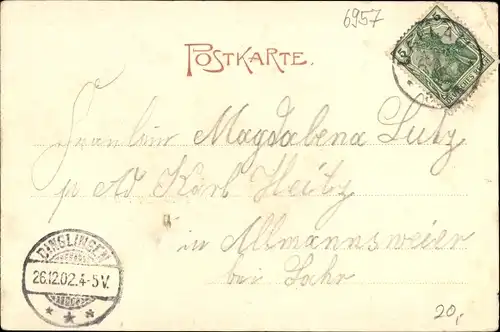 6957
POSTKARTE.
Fräulein Magdalena Lutz
Karl Heitz
in Allmannsweier
bei Lahr
DINGLINGEN
26.12.02.4-5V.
20,-